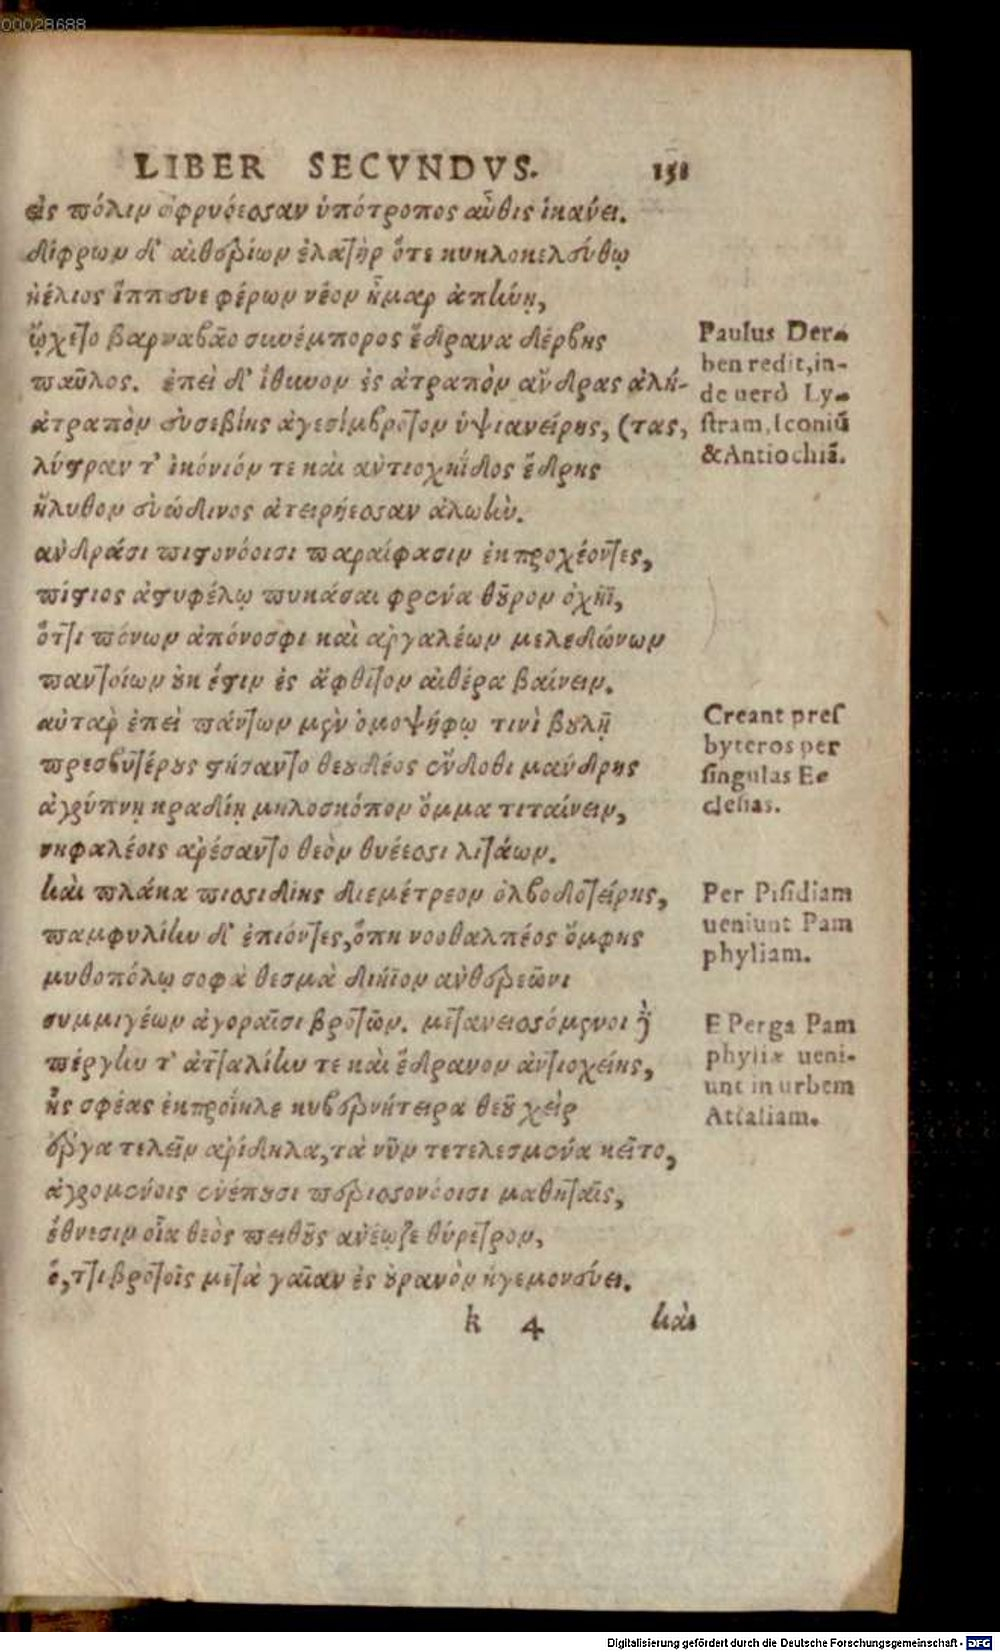 00028688
LIBER SECVNDVS. 151
εἰς πόλιν ὀφρυόεσσαν ὑπότροπος αὖθις ἱκάνει.
δίφρων δ' αἰθερίων ἐλατὴρ ὅτε κυκλοκελεύθῳ
ἠέλιος ἵππευε φέρων νέον ἦμαρ ἀπήνῃ,
ᾤχετο βαρναβᾶο συνέμπορος ἕδρανα δέρβης
παῦλος. ἐπεὶ δ' ἴθυνον ἐς ἀτραπὸν ἄνδρας ἀλή-
ἀτραπὸν εὐσεβίης ἀγεσίμβροτον ὑψιανείρης, (τας,
λύστραν τ' ἰκόνιόν τε καὶ ἀντιοχηΐδος ἕδρης
ἤλυθον εὐώδινος ἀτειρήεσσαν ἀλωήν.
ἀνδράσι πιστονόοισι παραίφασιν ἐκπροχέοντες,
πίστιος ἀστυφέλῳ πυκάσαι φρενὰ θοῦρον ὀχῆϊ,
ὅττι πόνων ἀπόνοσφι καὶ ἀργαλέων μελεδώνων
παντοίων οὐκ ἔστιν ἐς ἄφθιτον αἰθέρα βαίνειν.
αὐτὰρ ἐπεὶ πάντων μὲν ὁμοψήφῳ τινὶ βουλῇ
πρεσβυτέρους στήσαντο θευδέος ἔνδοθι μάνδρης
ἀγρύπνῃ κραδίῃ μηλοσκόπον ὄμμα τιταίνειν,
νηφαλέοις ἀρέσαντο θεὸν θυέεσσι λιτάων.
καὶ πλάκα πισσιδίης διεμέτρεον ὀλβοδοτείρης,
παμφυλίην δ' ἐπιόντες, ὅπη νοοθαλπέος ὄμφης
μυθοπόλῳ σοφὰ θεσμὰ δικήϊον ἀνθερεῶνι
συμμιγέων ἀγοραῖσι βροτῶν. μετανεισσόμενοι δὲ
πέργην τ' ἀτταλίην τε καὶ ἕδρανον ἀντιοχείης,
ἧς σφέας ἐκπροΐηλε κυβερνήτειρα θεοῦ χεὶρ
ἔργα τελεῖν ἀρίδηλα, τὰ νῦν τετελεσμένα κεῖτο,
ἀγρομένοις ἐνέπουσι περισσονόοισι μαθηταῖς,
ἔθνεσιν οἷα θεὸς πειθοῦς ἀνέῳξε θύρετρον,
ὅ,ττι βροτοῖς μετὰ γαῖαν ἐς οὐρανὸν ἡγεμονεύει.
k 4 καὶ
Paulus Der-
ben redit, in-
de uerò Ly-
stram, Iconiũ
& Antiochiã.
Creant pres
byteros per
singulas Ec
clesias.
Per Pisidiam
ueniunt Pam
phyliam.
E Perga Pam
phyliæ ueni-
unt in urbem
Attaliam.
Digitalisierung gefördert durch die Deutsche Forschungsgemeinschaft - DFG